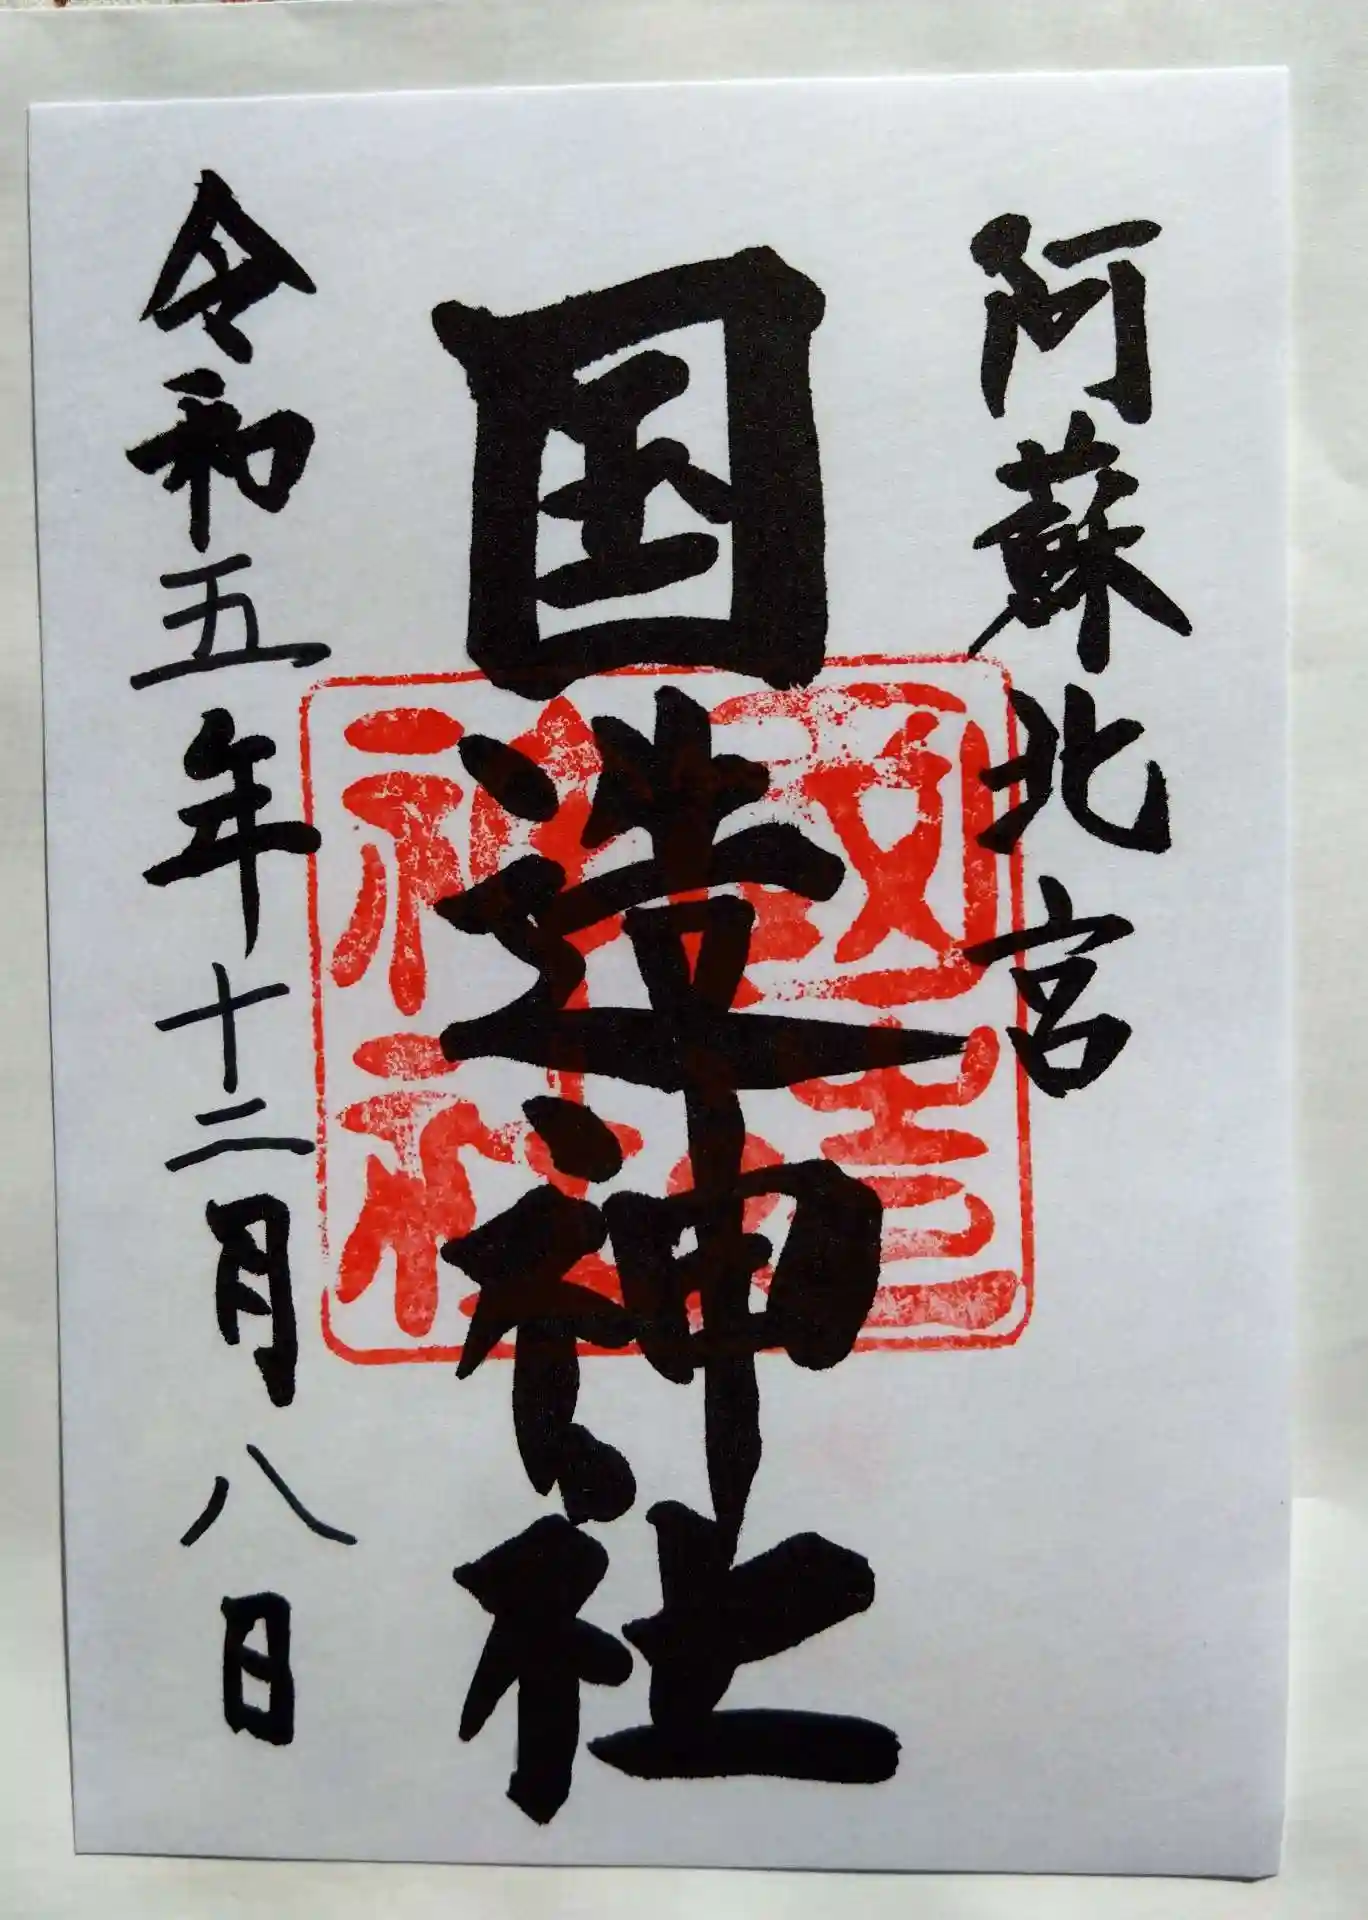 阿蘇北宮
国造神社
令和五年十二月八日
國造
神社